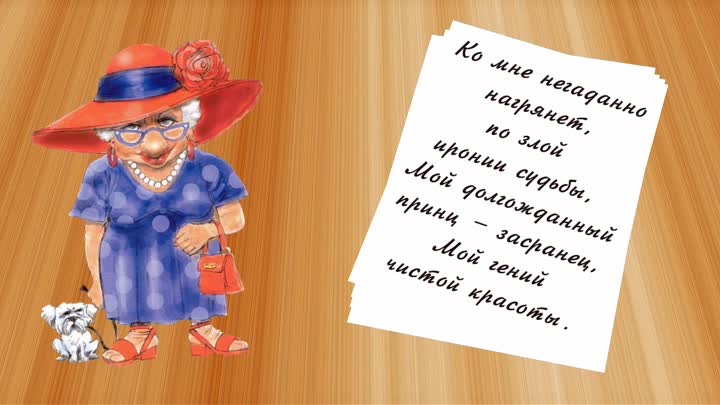 Ко мне негаданно
нагрянет,
по злой
иронии судьбы,
Мой долгожданный
принц – засранец,
Мой гений
чистой красоты.